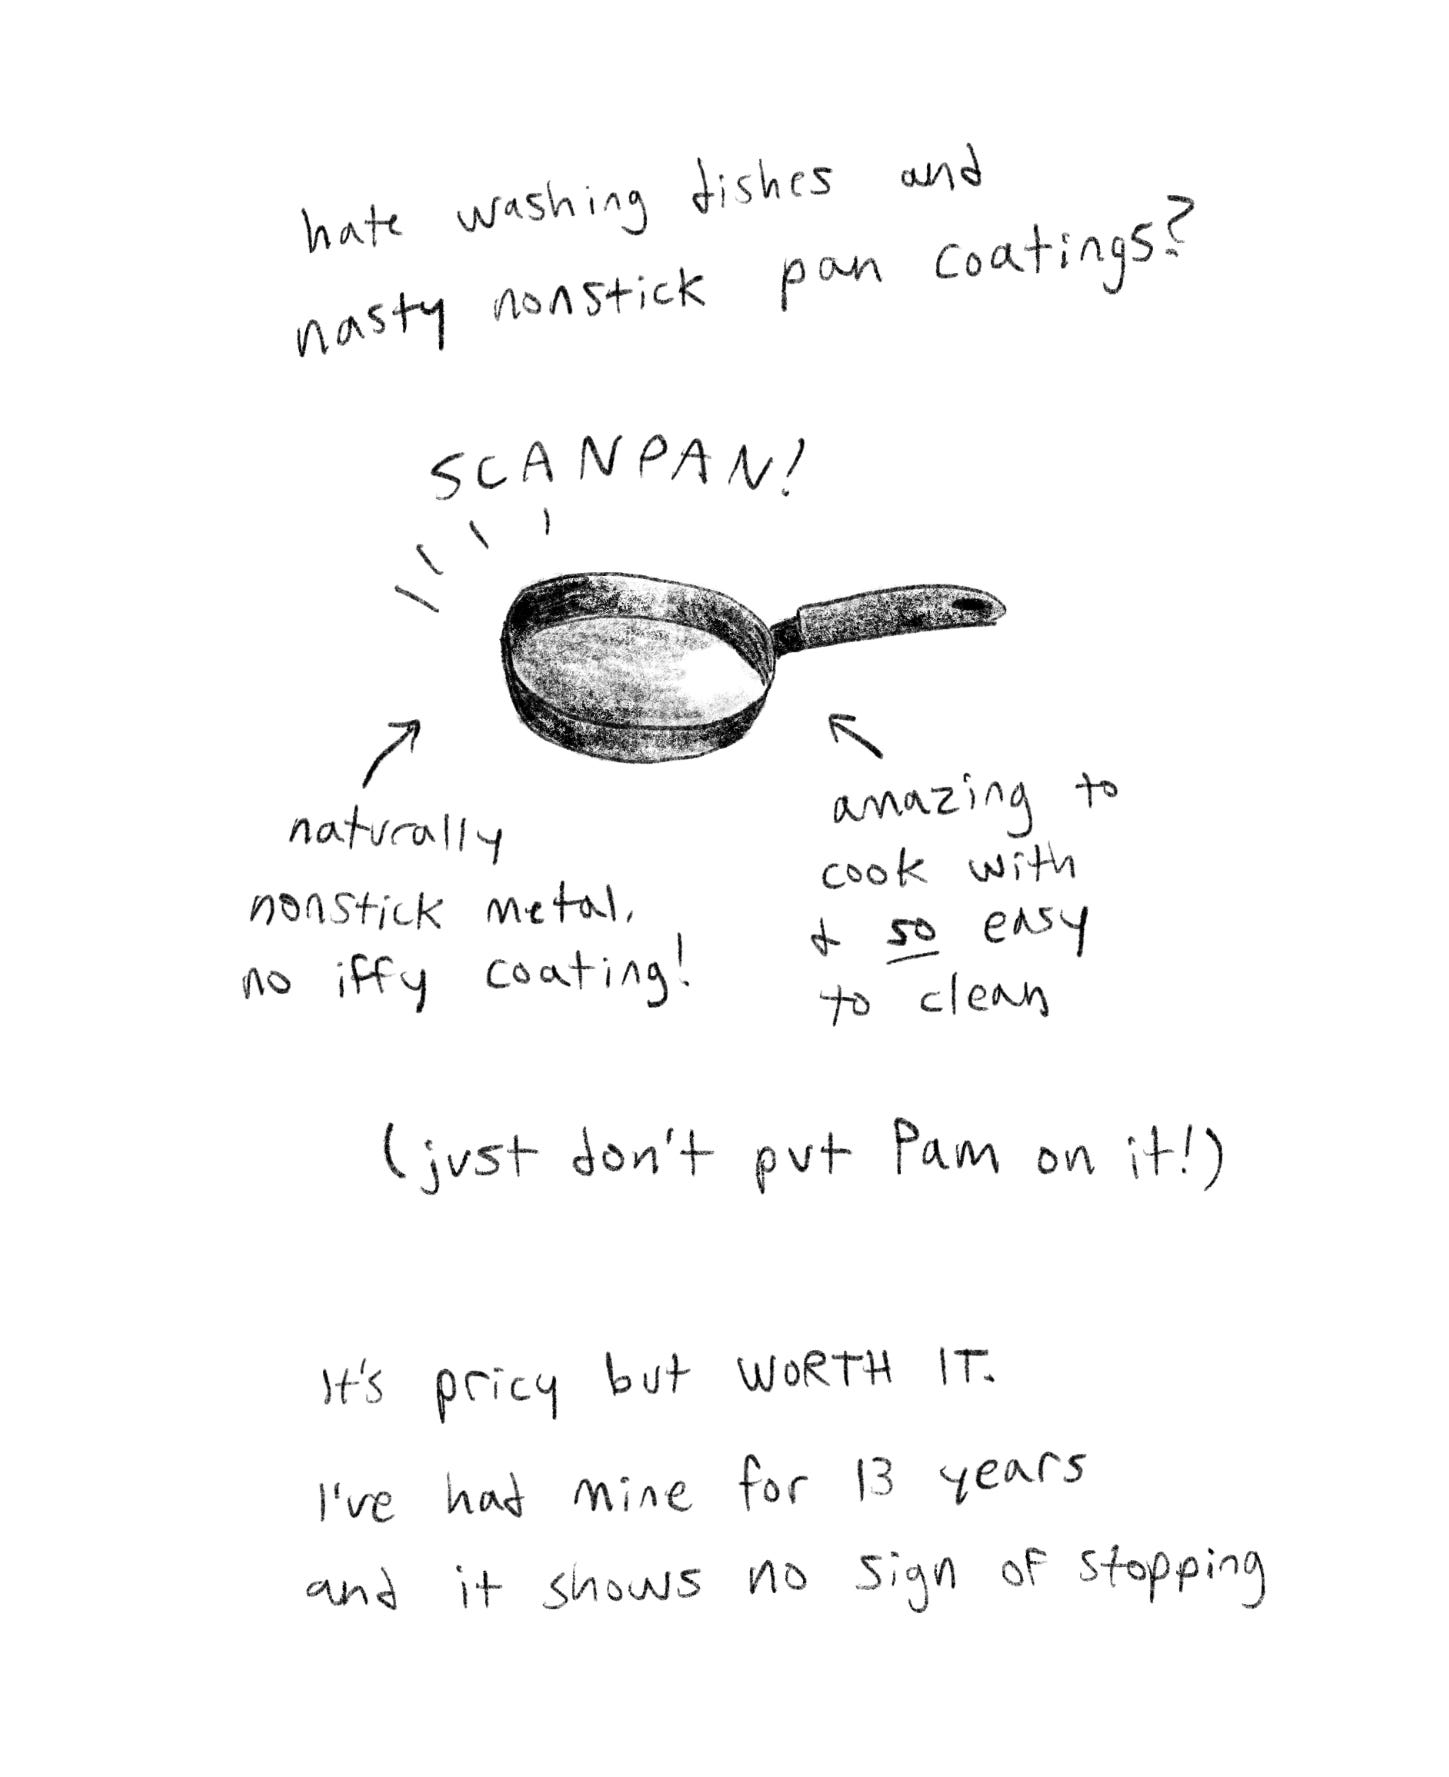 hate washing dishes and
nasty nonstick pan coatings?
SCANPAN!
naturally
nonstick metal.
no iffy coating!
amazing to
cook with
+ so easy
to clean
(just don't put Pam on it!)
It's pricy but WORTH IT.
I've had mine for 13 years
and it shows no sign of stopping